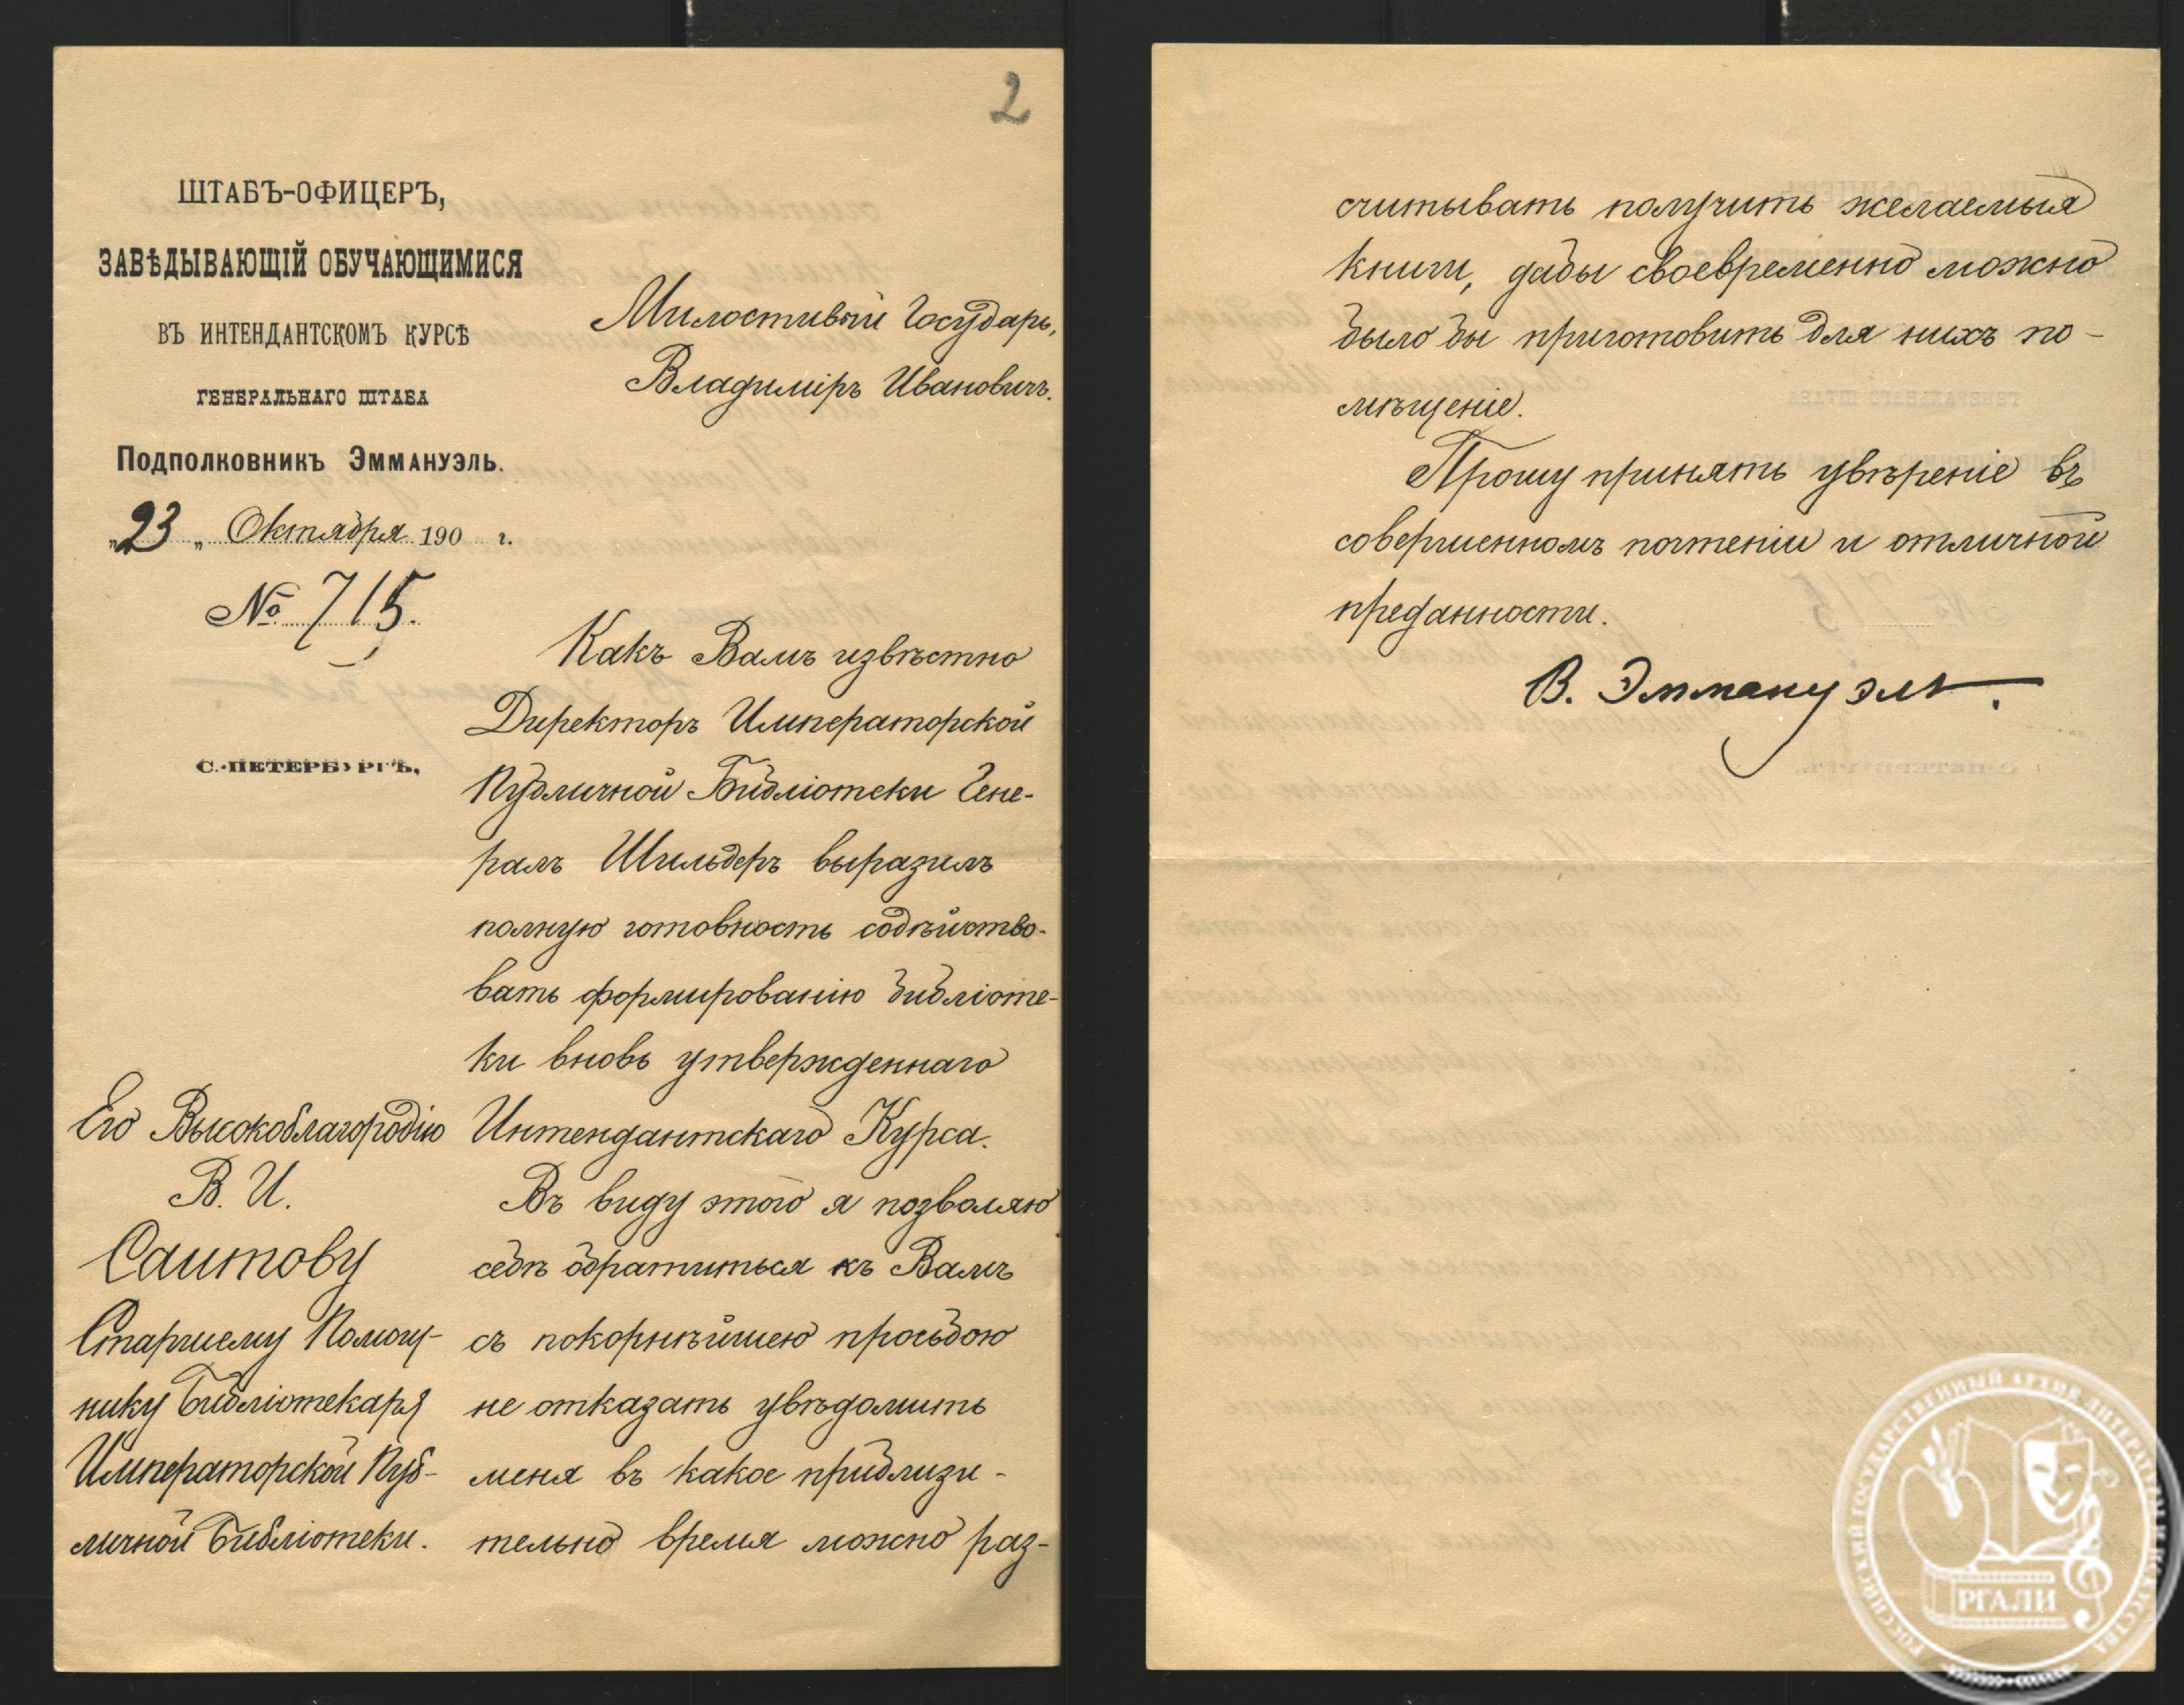 2
ШТАБЪ-ОФИЦЕРЪ,
ЗАВѢДЫВАЮЩІЙ ОБУЧАЮЩИМИСЯ
ВЪ ИНТЕНДАНТСКОМЪ КУРСѢ
ГЕНЕРАЛЬНАГО ШТАБА
ПОДПОЛКОВНИКЪ ЭММАНУЭЛЬ.
„23„ Октября 190 г.
№ 715.
С.-ПЕТЕРБУРГЪ,
Его Высокоблагородію
В. И.
Саитову
Старшему Помощ-
нику Библіотекаря
Императорской Пуб-
личной Библіотеки.
Милостивый Государь,
Владиміръ Ивановичъ.
Какъ Вамъ извѣстно
Директоръ Императорской
Публичной Библіотеки Гене-
ралъ Шильдеръ выразилъ
полную готовность содѣйство-
вать формированію библіоте-
ки вновь утвержденнаго
Интендантскаго Курса.
Въ виду этого я позволяю
себѣ обратиться къ Вамъ
съ покорнѣйшею просьбою
не отказать увѣдомить
меня въ какое приблизи-
тельно время можно раз-
считывать получить желаемыя
книги, дабы своевременно можно
было бы приготовить для нихъ по-
мѣщеніе.
Прошу принять увѣреніе въ
совершенномъ почтеніи и отличной
преданности.
В. Эммануэль.
РОССИЙСКИЙ ГОСУДАРСТВЕННЫЙ АРХИВ ЛИТЕРАТУРЫ И ИСКУССТВА
РГАЛИ